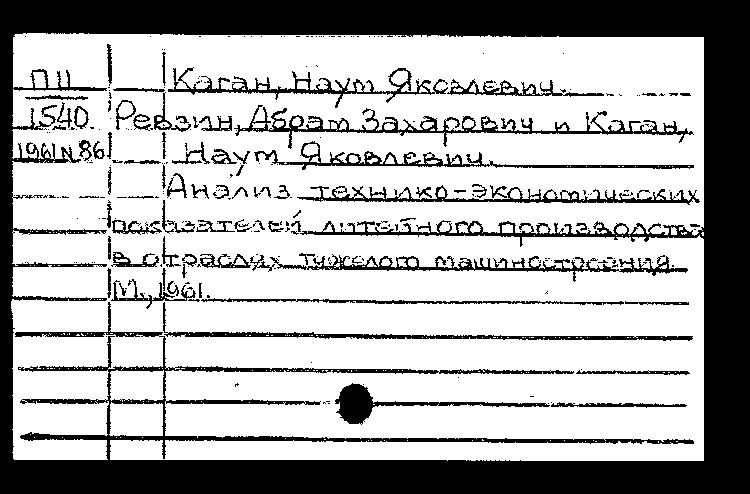 П11
1540
1961 N 86
Каган, Наум Яковлевич.
Ревзин, Абрам Захарович и Каган,
Наум Яковлевич.
Анализ технико-экономических
показателей литейного производства
в отраслях тяжелого машиностроения.
М., 1961.